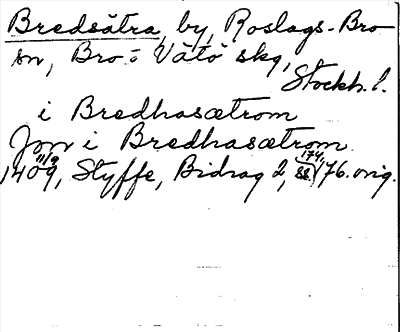 Bredsätra, by, Roslags-Bro
sn, Bro- o Vätö skg,
Stockh. l.
i Bredhasætrom
Jon i Bredhasætrom
1409 11/9, Styffe, Bidrag 2, 174, 176. orig.